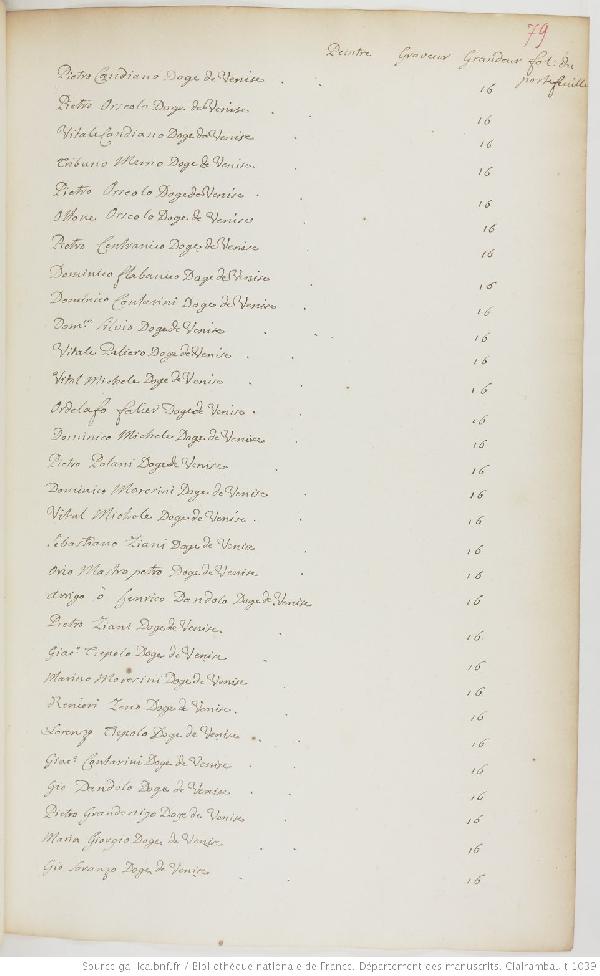 79
Peintre Graveur Grandeur fol. du portefeuille
Pietro Candiano Doge de Venise . . 16
Pietro Orseolo Doge de Venise . 16
Vitale Candiano Doge de Venise . 16
Tribuno Memo Doge de Venise . 16
Pietro Orseolo Doge de Venise . 16
Ottone Orseolo Doge de Venise . 16
Pietro Centranico Doge de Venise 16
Dominico Flabanico Doge de Venise 16
Dominico Contarini Doge de Venise . 16
Dom.co Silvio Doge de Venise . . 16
Vitale Faliero Doge de Venise . . 16
Vital Michele Doge de Venise . 16
Ordelafo Falier Doge de Venise . . 16
Dominico Michele Doge de Venise . 16
Pietro Polani Doge de Venise . 16
Dominico Moresini Doge de Venise . 16
Vital Michele Doge de Venise . . 16
Sebastiano Ziani Doge de Venise . 16
Orio Mastro petro Doge de Venise . 16
Arrigo ò Henrico Dandolo Doge de Venise 16
Pietro Ziani Doge de Venise . . 16
Giac.o Tiepolo Doge de Venise . 16
Marino Moresini Doge de Venise . 16
Renieri Zeno Doge de Venise . . 16
Lorenzo Tiepolo Doge de Venise . . 16
Giac.o Contarini Doge de Venise . . 16
Gio Dandolo Doge de Venise . . 16
Pietro Grandenigo Doge de Venise . 16
Marin Giorgio Doge de Venise . . 16
Gio Soranzo Doge de Venise . . 16
Source gallica.bnf.fr / Bibliothèque nationale de France. Département des manuscrits. Clairambault 1039